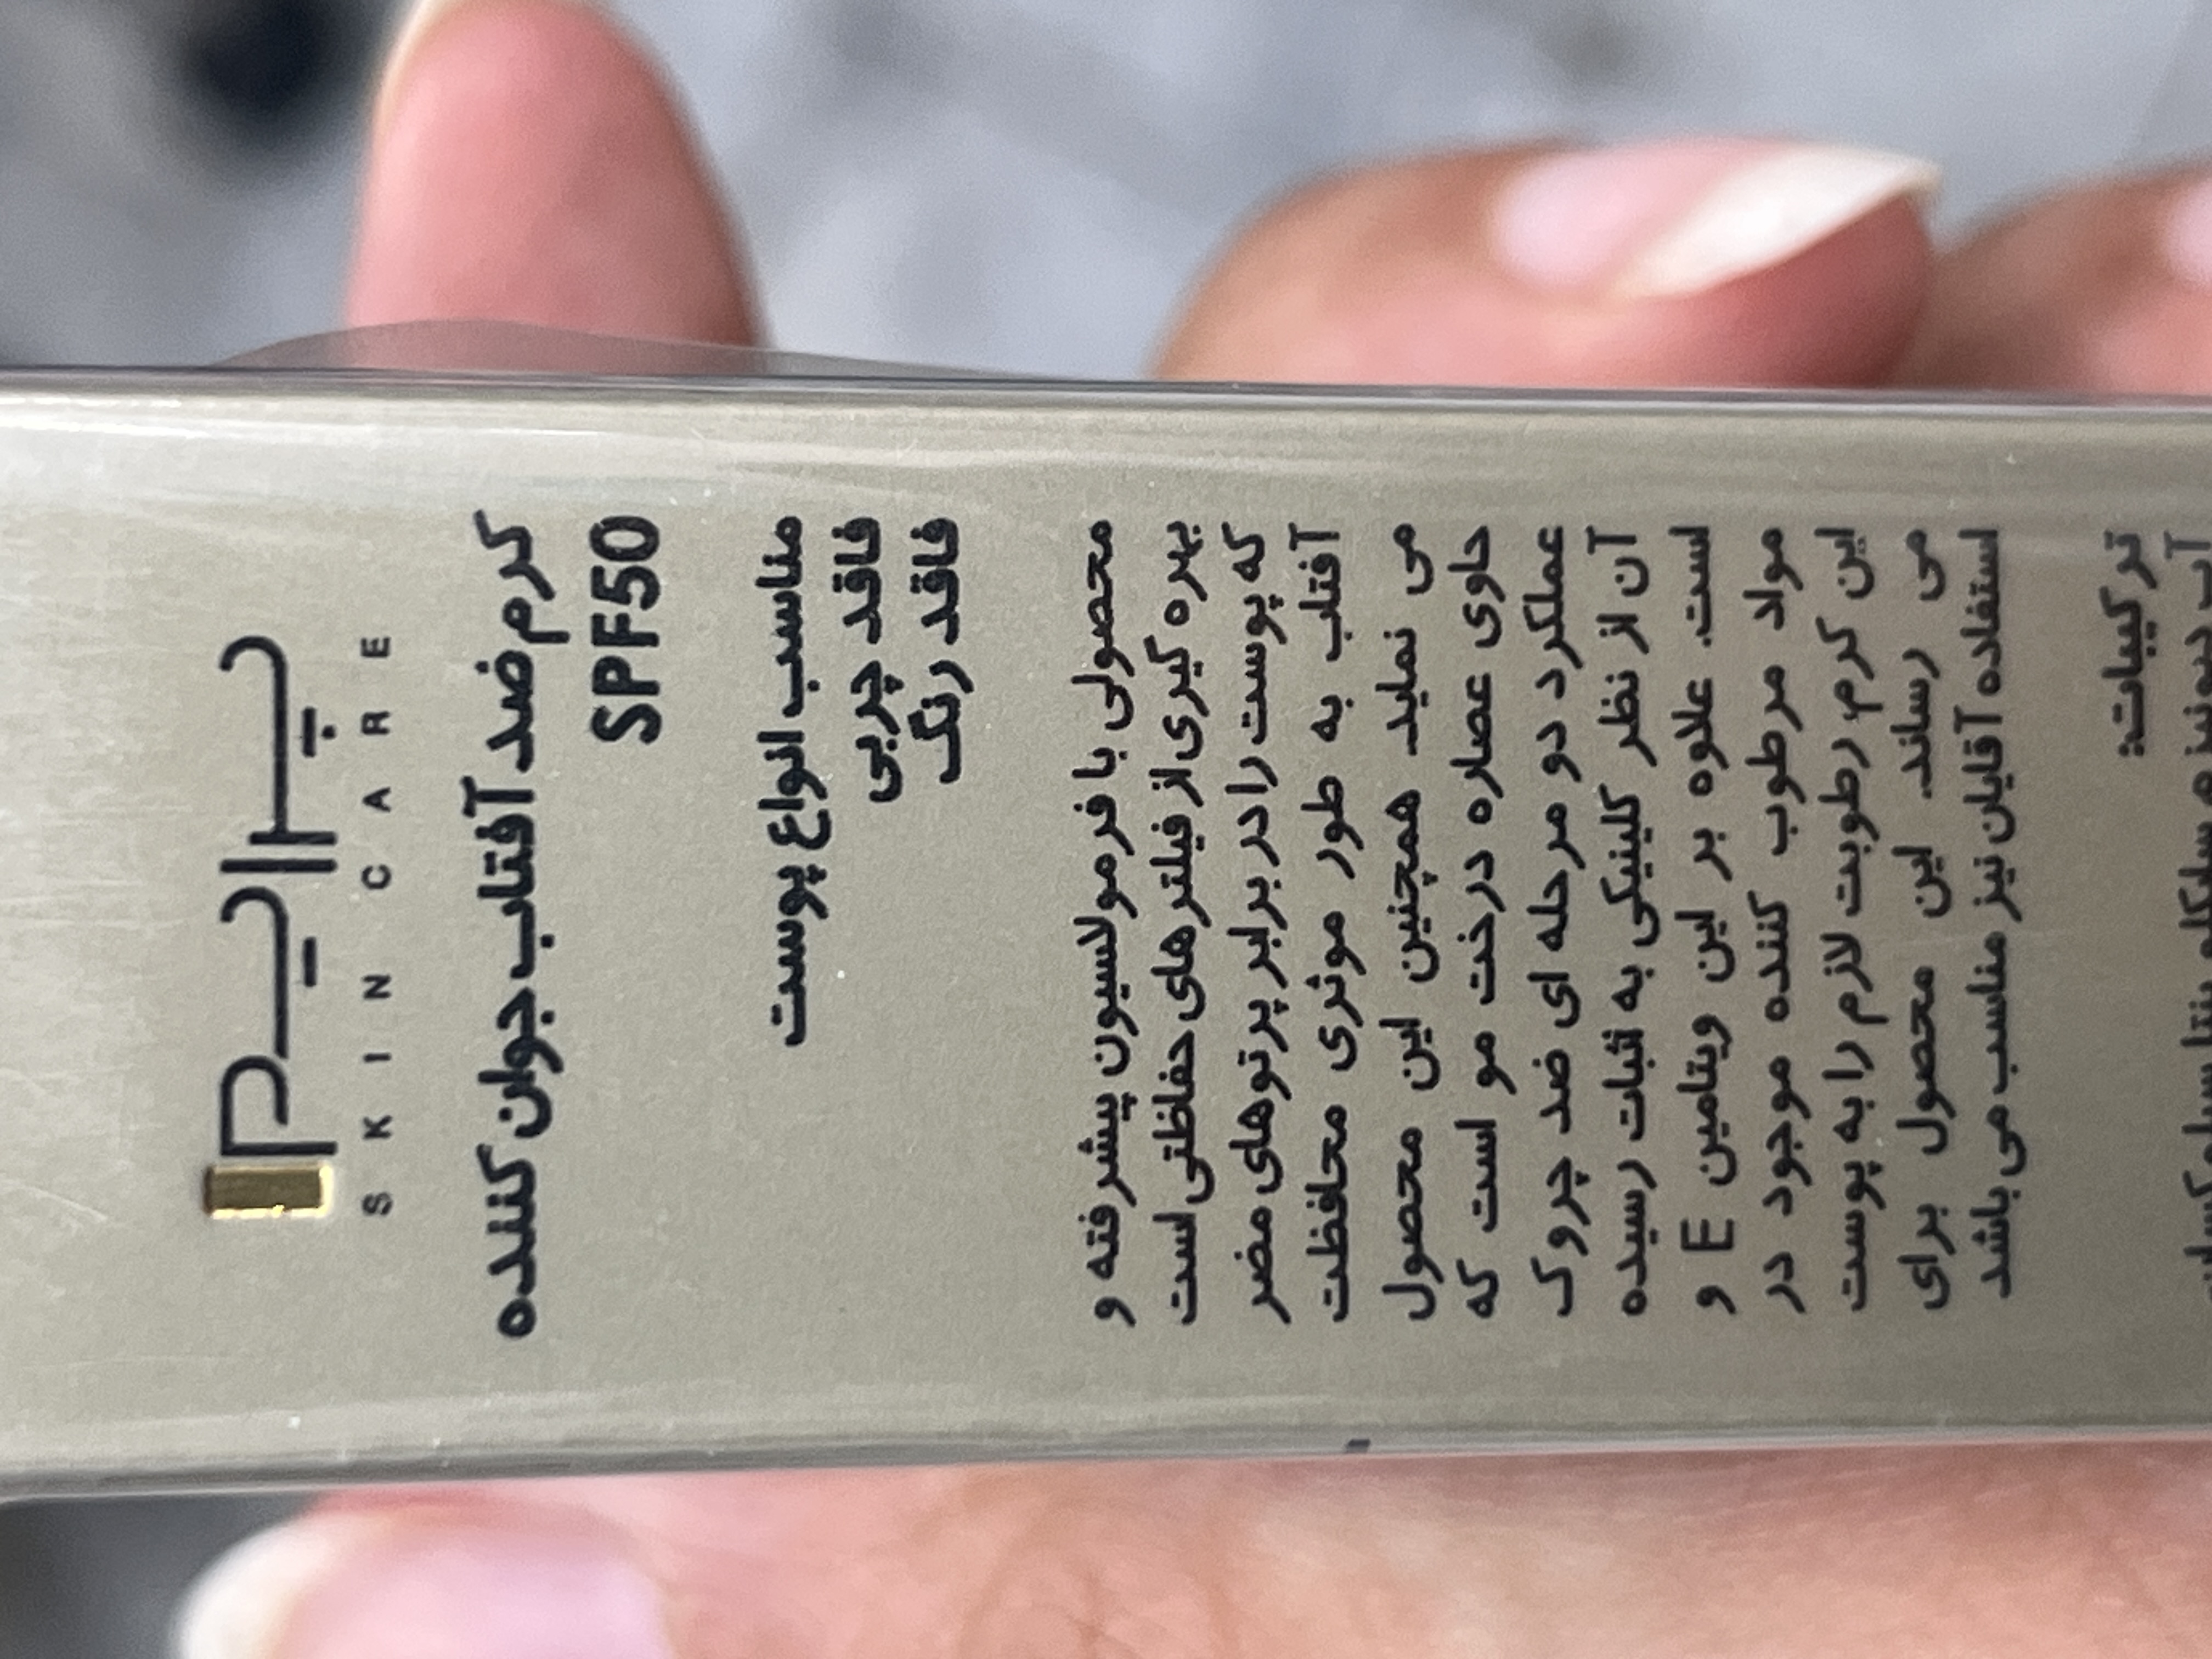 SKINCARE
کرم ضد آفتاب جوان کننده
SPF50
مناسب انواع پوست
فاقد چربی
فاقد رنگ
محصولی با فرمولاسیون پیشرفته و
بهره گیری از فیلترهای حفاظتی است
که پوست را در برابر پرتوهای مضر
آفتاب به طور موثری محافظت
می نماید. همچنین این محصول
حاوی عصاره درخت مو است که
عملکرد دو مرحله ای ضد چروک
آن از نظر کلینیکی به اثبات رسیده
است. علاوه بر این ویتامین E و
مواد مرطوب کننده موجود در
این کرم رطوبت لازم را به پوست
می رساند. این محصول برای
استفاده آقایان نیز مناسب می باشد
ترکیبات: